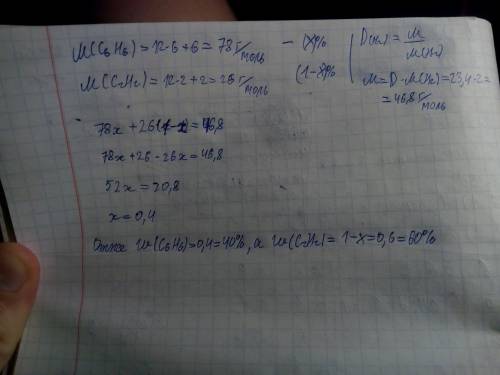 M(C6H6) = 12·6+6 = 78 г/моль – (x)%
M(C2H2) = 12·2+2 = 26 г/моль (1-x)%
D(H2) = M/M(H2)
M = D·M(H2) = 23,4·2 =
= 46,8 г/моль
78x + 26(1-x) = 46,8
78x + 26 - 26x = 46,8
52x = 20,8
x = 0,4
Отже w(C6H6) = 0,4 = 40%, а w(C2H2) = 1-x = 0,6 = 60%